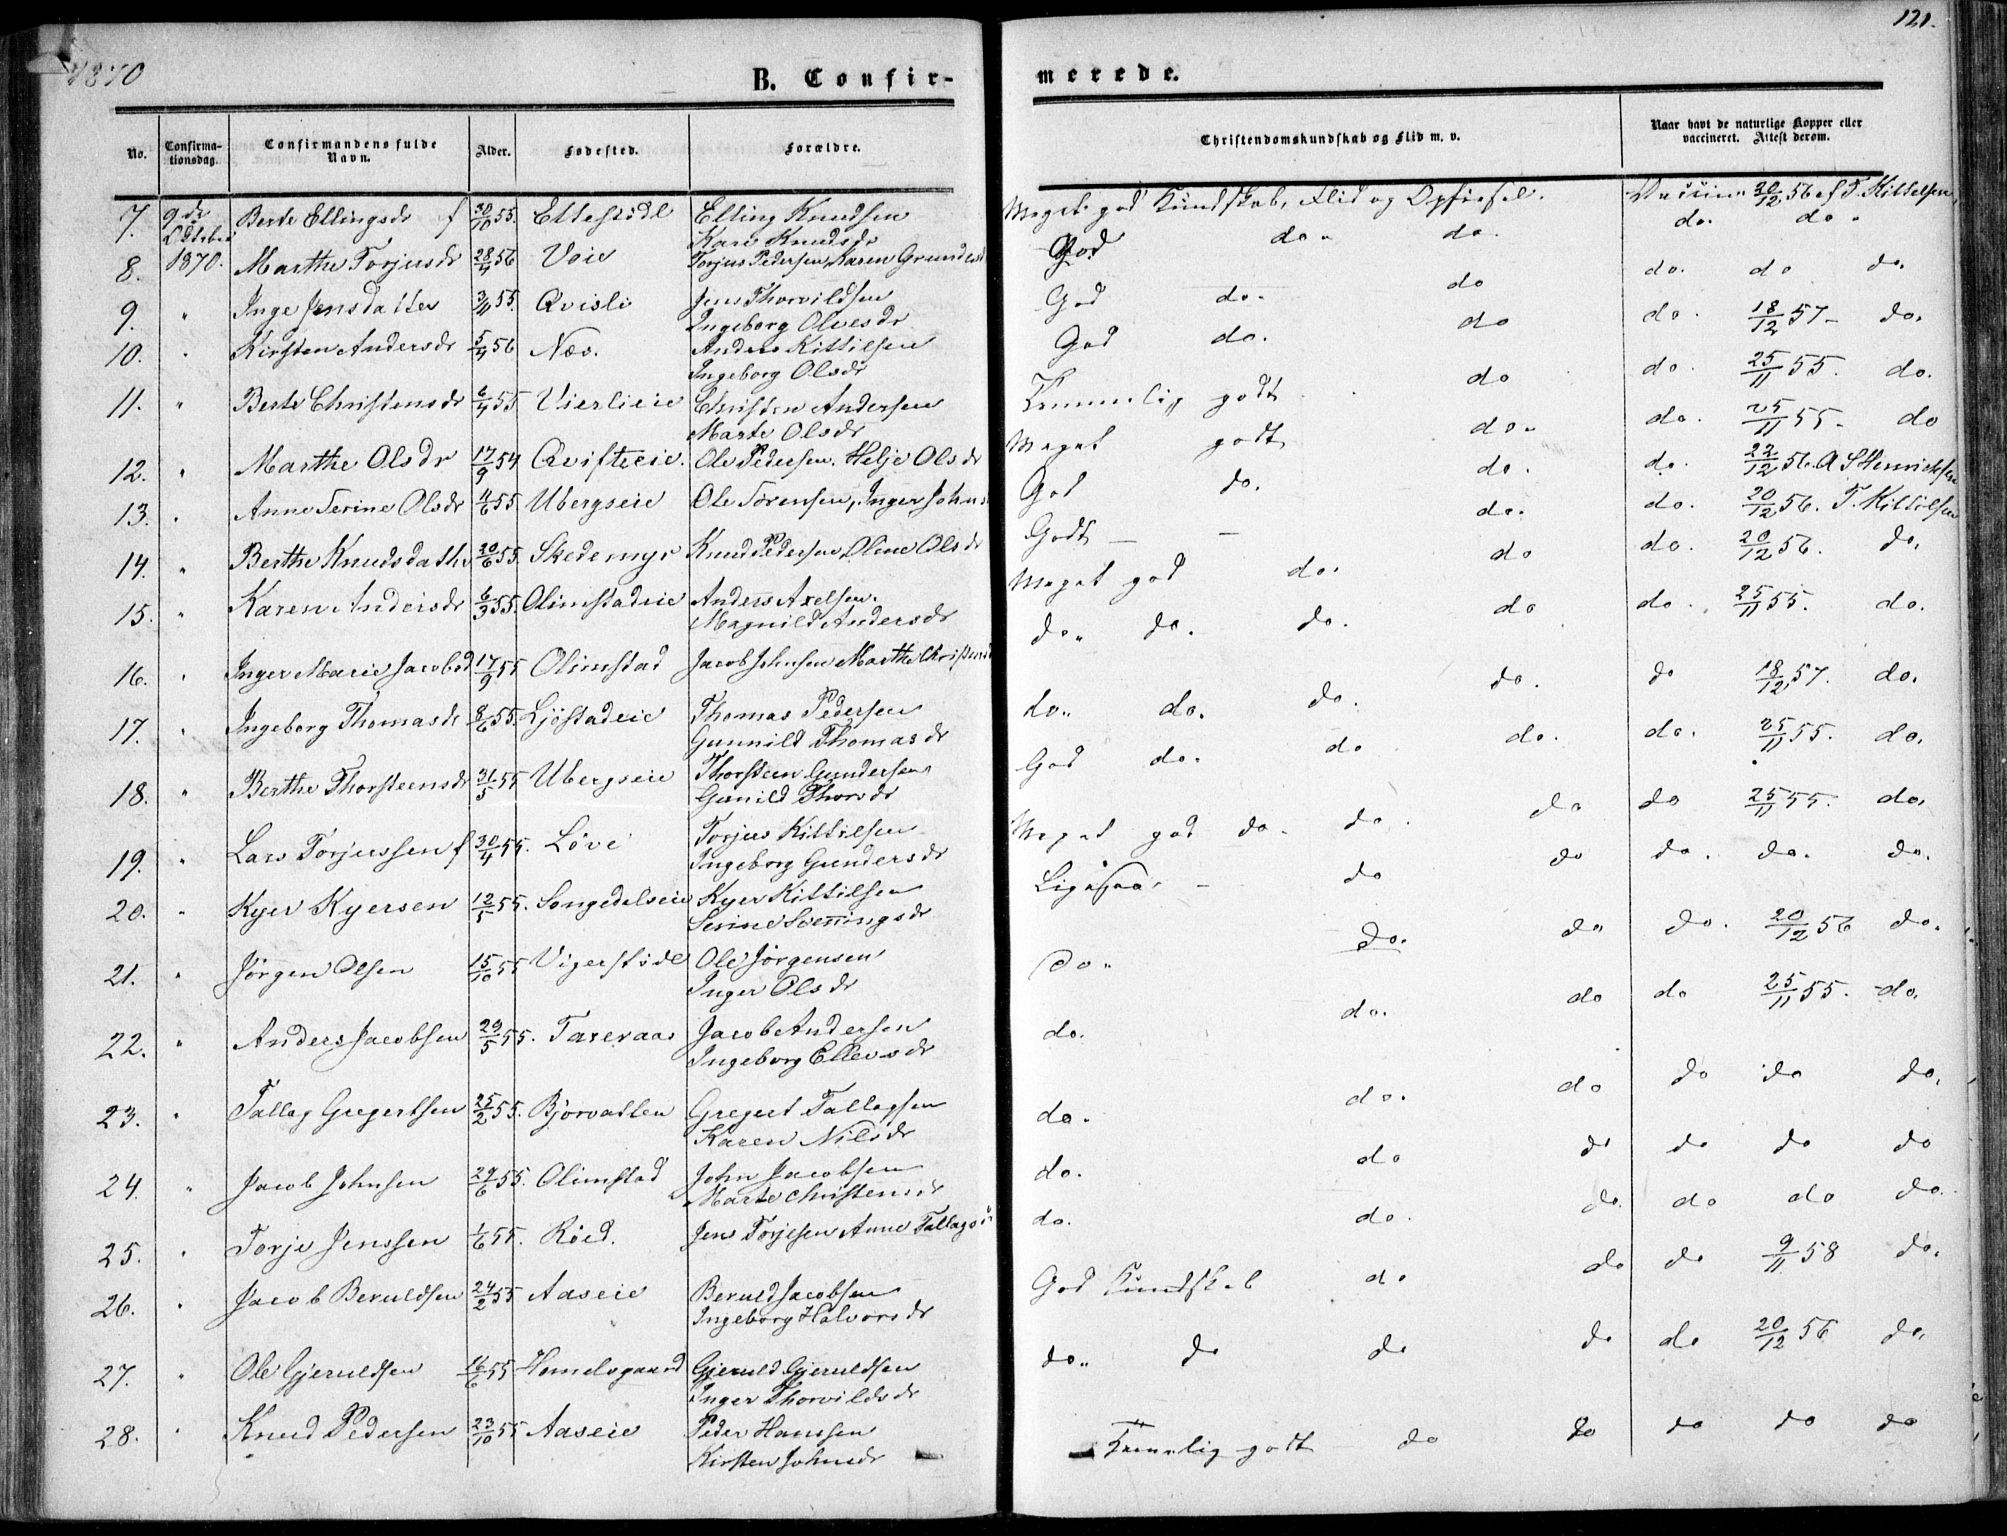 1870
121.
B. Confir-
merede.
No.
Confirma-
tionsdag.
Confirmandens fulde
Navn.
Alder.
Fødested.
Forældre.
Christendomskundskab og Flid m. v.
Naar havt de naturlige Kopper eller
vaccineret. Attest derom.
7. 9de Berte Ellingsdr 30/10 55. Elling Knudsen Meget god Kundskab, Flid og Opførsel. 20/12 56 af T. Kittelsen
Octobe Kare Knudsdr
8. 1870. Marthe Torjusdr 28/4 56 Voie Torjus Pedersen, Karen God do. do. do. do.
9. " Inge Jensdatter 3/11 55. Qvisli Jens Thorvildsen God do. do do. do do.
Ingeborg Olvesdr
10. " Kirsten Andersdr 5/4 56 Næs. Anders Kittilsen God do. do do. 18/12 57 – do.
Ingeborg Olsdr
11. " Berte Christensdr 6/4 55 Vierlieie Christen Andersen Temmelig godt do do. 25/11 55. do.
Marte Olsdr
12. " Marthe Olsdr 17/9 54 Ole Pedersen. Helje Olsdr Meget godt do. do. 25/11 55 – do
13. " Anne Serine Olsdr 4/6 55 Ubergseie Ole Sørensen, Inger Johns God do. do. do. 22/12 56. A S Henrichsen
14. " Berthe Knudsdatter 20/6 55. Skedemyr Knud Pedersen, Oline Olsdr Godt – – do. do. 20/12 56. T. Kittilsen
15. " Karen Andersdr 6/3 55 Olimstadeie Anders Axelsen. Meget god do. do do. 20/12 56. do.
Magnild Andersdr
16. " Inger Marie Jacobsd 17/9 55 Olimstad Jacob Johnsen Marthe Christensd do. do. do. do do. 25/11 55. do.
17. " Ingeborg Thomasdr 8/6 55. Ljøstadeie Thomas Pedersen do. do. do. do. do 18/12 57. do.
Gunnild Thomasdr
18. " Berthe Thorsteensdr 31/5 55 Ubergseie Thorsteen Gundersen God do. do do. do. 25/11 55. do.
Gunild Thorsdr
19. " Lars Torjussen f 30/4 55. Løve Torjus Kittilsen Meget god do. do. do do 25/11 55. do.
Ingeborg Gundersdr
20. " Kyer Kyersen 12/5 55. Songedalseie Kyer Kittilsen Ligesaa. – do do do. do. do.
Serine Svenningsdr
21. " Jørgen Olsen 15/10 55 Ole Jørgensen do. do. do do. 20/12 56 do.
Inger Olsdr
22. " Anders Jacobsen 29/5 55. Taxeraas Jacob Andersen do. do. do do 25/11 55. do.
Ingeborg Ellevsdr
23. " Tallag Gregertsen 25/2 55. Bjorvatten Gregert Tallagsen do. do. do do do do.
Karen Nilsdr
24. " Jacob Johnsen 29/6 55. Olimstad John Jacobsen do. do do do do do
Marte Christensdr
25. " Torje Jenssen 1/6 55. Røed. Jens Torjesen Anne Tallagsd do. do. do. do do do.
26. " Jacob Beruldsen 24/2 55 Aaseie Beruld Jacobsen God Kundskab do do do 9/11 58 do.
Ingeborg Halvorsdr
27. " Ole Gjeruldsen 16/6 55 Homelsgaard Gjeruld Gjeruldsen do. do do do do 20/12 56 do.
Inger Thorvildsdr
28. " Knud Pedersen 23/10 55 Aaseie Peder Hanssen Temmelig godt do do do do do
Kirsten Johnsdr